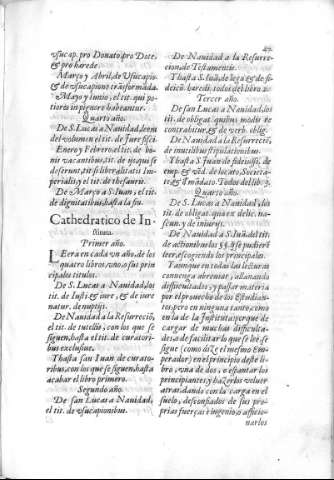 vsucap. pro Donato, pro Dote,
& pro herede.
Março y Abril, de Vsucapio.
& de vsucapione trãsformada.
Mayo y Iunio, el tit. qui po-
tiores in pignore habeantur.
Quarto año.
De S. Lucas a Nauidad, leerá
del volumen el tit. de Iure fisci.
Enero y Febrero, el tit. de bo-
nis vacantibus, tit. de ijs qui se
deferunt, tit. si liberalitatis Im-
perialis, y el tit. de thesauris.
De Março a S. Iuan, el tit.
de dignitatibus, hasta la fin.
Cathedratico de In-
stituta.
Primer año.
LEera en cada vn año, de los
quatro libros, vno, o sus prin
cipales titulos.
De S. Lucas a Nauidad, los
tit. de Iusti. & iure, & de iure
natur. de nuptijs.
De Nauidad a la Resurreció,
el tit. de tutelis, con los que se
siguen, hasta el tit. de curatori-
bus exclusiue.
Thasta san Iuan de curato-
ribus, con los que se siguen, hasta
acabar el libro primero.
Segundo año.
De san Lucas a Nauidad,
el tit. de vsucapionibus.
47.
De Nauidad a la Resurre-
cion, de Testamentis.
Thasta S. Iuã, de lega. & de fi-
deicõ. haredi. todos del libro 2.
Tercer año.
De san Lucas a Nauidad, los
tit. de obligat. quibus modis re
contrahitur, & de verb. oblig.
De Nauidad a la Resurreció,
de inutilibus stipulationibus.
Thasta S. Iuan de fideiusso. de
emp. & vẽd. de locato, Societa-
te & mãdato. Todos del lib. 3.
Quarto año.
De S. Lucas a Nauidad, los
tit. de obligat. quæ ex delic. na-
scun. y de iniurijs.
De Nauidad a S. Iuã, del tit.
de actionibus los §§. q̃ se pudierẽ
leer, escogiendo los principales.
Y aunque en todas las lecturas
conuenga abreuiar, allanando
difficultades, y passar materia
por el prouecho de los Estudian-
tes, pero en ninguna tanto, como
en la de la Instituta: porque de
cargar de muchas difficulta-
des, o de facilitar lo que se lee se
sigue (como dize el mesmo Em-
perador) en el principio deste li-
bro, vna de dos, o espantar los
principiantes, y hazerlos voluer
atras, dando con la carga en el
suelo, desconfiados de sus pro-
prias fuerças e ingenio, o afficio-
narlos